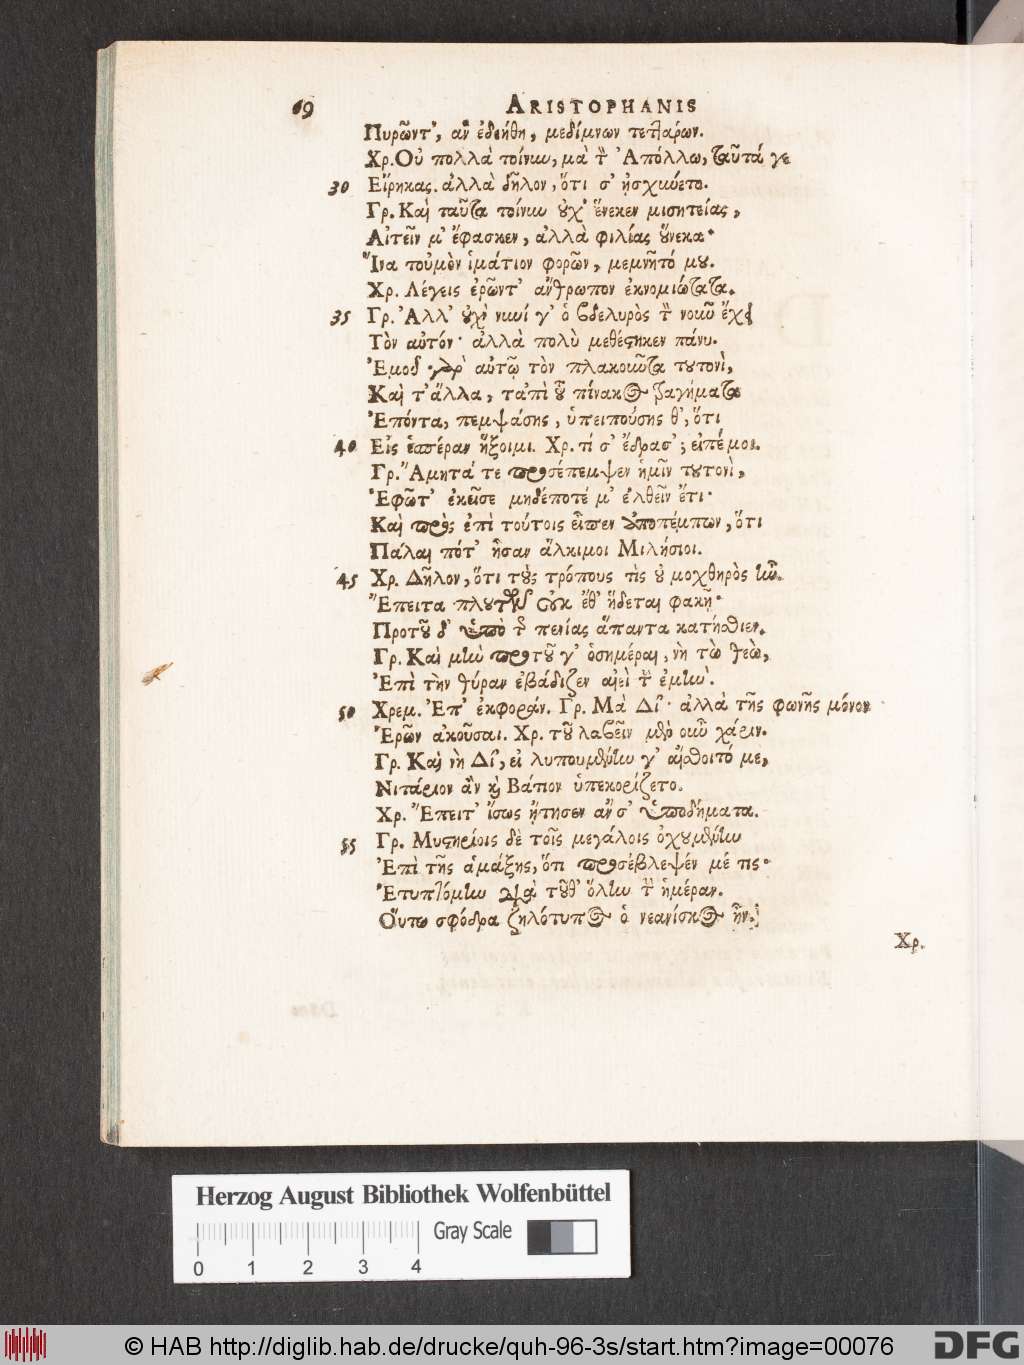 69 ARISTOPHANIS
Πυρῶντ', ἂν ἐδεήθη, μεδίμνων τεττάρων.
Χρ. Οὐ πολλὰ τοίνυν, μὰ τὸν Ἀπόλλω, ταῦτά γε
30 Εἴρηκας. ἀλλὰ δῆλον, ὅτι σ' ᾐσχύνετο.
Γρ. Καὶ ταῦτα τοίνυν οὐχ' ἕνεκεν μισητείας,
Αἰτεῖν μ' ἔφασκεν, ἀλλὰ φιλίας οὕνεκα·
Ἵνα τοὐμὸν ἱμάτιον φορῶν, μεμνῇτό μου.
Χρ. Λέγεις ἐρῶντ' ἄνθρωπον ἐκνομιώτατα.
35 Γρ. Ἀλλ' οὐχὶ νυνί γ' ὁ βδελυρὸς τὸν νοῦν ἔχει
Τὸν αὐτόν· ἀλλὰ πολὺ μεθέστηκεν πάνυ.
Ἐμοῦ γὰρ αὐτῷ τὸν πλακοῦντα τουτονὶ,
Καὶ τ' ἄλλα, ταπὶ τοῦ πίνακος τραγήματα
Ἐπόντα, πεμψάσης, ὑπειπούσης θ', ὅτι
40 Εἰς ἑσπέραν ἥξοιμι. Χρ. τί σ' ἔδρασ'; εἰπέ μοι.
Γρ. Ἄμητά τε προσέπεμψεν ἡμῖν τουτονὶ,
Ἐφῶτ' ἐκεῖσε μηδέποτέ μ' ἐλθεῖν ἔτι·
Καὶ πρὸς ἐπὶ τούτοις εἶπεν ἀποπέμπων, ὅτι
Πάλαι πότ' ἦσαν ἄλκιμοι Μιλήσιοι.
45 Χρ. Δῆλον, ὅτι τοὺς τρόπους τὶς οὐ μοχθηρὸς ἦν.
Ἔπειτα πλουτῶν οὐκ ἔθ' ἥδεται φακῇ·
Προτοῦ δ' ὑπὸ τῆς πενίας ἅπαντα κατήσθιεν.
Γρ. Καὶ μὴν προτοῦ γ' ὁσημέραι, νὴ τὼ θεὼ,
Ἐπὶ τὴν θύραν ἐβάδιζεν αἰεὶ τὴν ἐμήν.
50 Χρεμ. Ἐπ' ἐκφοράν. Γρ. Μὰ Δί'· ἀλλὰ τῆς φωνῆς μόνον
Ἐρῶν ἀκοῦσαι. Χρ. τοῦ λαβεῖν μὲν οὖν χάριν.
Γρ. Καὶ νὴ Δί', εἰ λυπουμένην γ' αἴσθοιτό με,
Νιτάριον ἂν καὶ Βάτιον ὑπεκορίζετο.
Χρ. Ἔπειτ' ἴσως ᾔτησεν ἄν σ' ὑποδήματα.
55 Γρ. Μυστηρίοις δὲ τοῖς μεγάλοις ὀχουμένην
Ἐπὶ τῆς ἁμάξης, ὅτι προσέβλεψέν μέ τις·
Ἐτυπτόμην διὰ τοῦθ' ὅλην τὴν ἡμέραν.
Οὕτω σφόδρα ζηλότυπος ὁ νεανίσκος ἦν.
Χρ.
Herzog August Bibliothek Wolfenbüttel
Gray Scale
0 1 2 3 4
© HAB http://diglib.hab.de/drucke/quh-96-3s/start.htm?image=00076
DFG